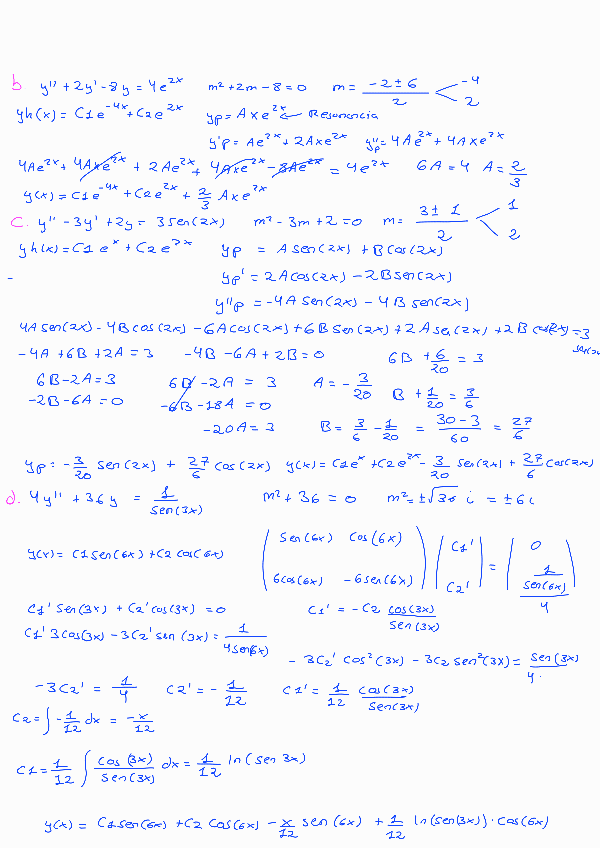 b y'' + 2y' - 8y = 4e^2x m² + 2m - 8 = 0 m = (-2 ± 6)/2 < -4 2
yh(x) = C1e^-4x + C2e^2x yp = Axe^2x ← Resonancia
y'p = Ae^2x + 2Axe^2x y''p = 4Ae^2x + 4Axe^2x
4Ae^2x + 4Axe^2x + 2Ae^2x + 4Axe^2x - 8Ae^2x = 4e^2x 6A = 4 A = 2/3
y(x) = C1e^-4x + C2e^2x + 2/3 Axe^2x
C. y'' - 3y' + 2y = 3sen(2x) m² - 3m + 2 = 0 m = (3 ± 1)/2 < 1 2
yh(x) = C1e^x + C2e^2x yp = Asen(2x) + Bcos(2x)
- yp' = 2Acos(2x) - 2Bsen(2x)
y''p = -4Asen(2x) - 4Bsen(2x)
4Asen(2x) - 4Bcos(2x) - 6Acos(2x) + 6Bsen(2x) + 2Asen(2x) + 2Bcos(2x) = 3
-4A + 6B + 2A = 3 -4B - 6A + 2B = 0 6B + 6/20 = 3
6B - 2A = 3 6B - 2A = 3 A = -3/20 B + 1/20 = 3/6
-2B - 6A = 0 -6B - 18A = 0
-20A = 3 B = 3/6 - 1/20 = (30-3)/60 = 27/6
yp = -3/20 sen(2x) + 27/6 cos(2x) y(x) = C1e^x + C2e^2x - 3/20 sen(2x) + 27/6 cos(2x)
d. 4y'' + 36y = 1/sen(3x) m² + 36 = 0 m² = ±√36 i = ±6i
y(x) = C1sen(6x) + C2cos(6x) ( sen(6x) cos(6x) 6cos(6x) -6sen(6x) ) ( C1' C2' ) = ( 0 (1/sen(6x))/4 )
C1'sen(3x) + C2'cos(3x) = 0 C1' = -C2 cos(3x)/sen(3x)
C1'3cos(3x) - 3C2'sen(3x) = 1/4sen(3x)
-3C2'cos²(3x) - 3C2sen²(3x) = sen(3x)/4.
-3C2' = 1/4 C2' = -1/12 C1' = 1/12 cos(3x)/sen(3x)
C2 = ∫ -1/12 dx = -x/12
C1 = 1/12 ∫ cos(3x)/sen(3x) dx = 1/12 ln(sen3x)
y(x) = C1sen(6x) + C2cos(6x) - x/12 sen(6x) + 1/12 ln(sen(3x))·cos(6x)